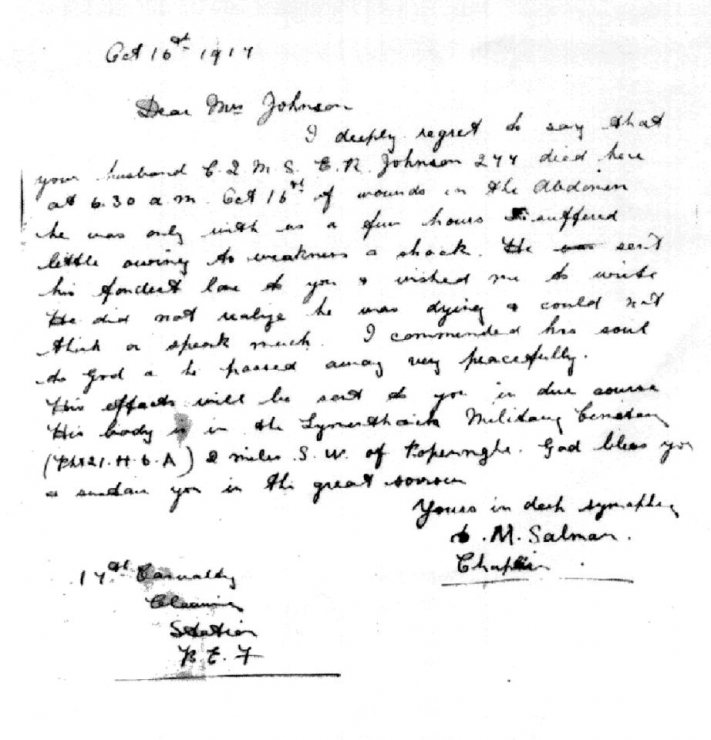 Oct 16th 1917
Dear Mrs Johnson
I deeply regret to say that
your husband C Q M S E. R. Johnson 277 died here
at 6.30 a m. Oct 16th of wounds in the Abdomen
he was only with us a few hours & suffered
little owing to weakness & shock. He sent
his fondest love to you & wished me to write
He did not realize he was dying & could not
think or speak much. I commended his soul
to God & he passed away very peacefully.
His effects will be sent to you in due course
His body is in the Military Cemetery
2 miles S. W. of Poperinghe. God bless you
& sustain you in the great sorrow
Yours in deep sympathy
M. Salman.
Chaplain
17th Casualty
Clearing
Station
B. E. F